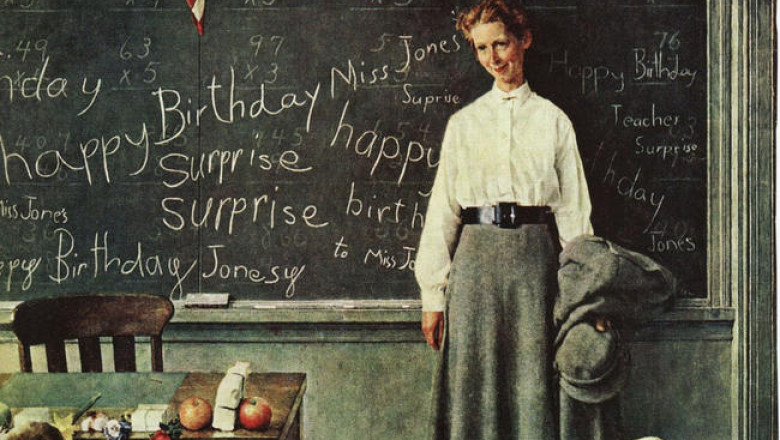 63
x 5
97
x 3
hday
happy
iss Jones
ppy Birthday Jonesy
Birthday Miss Jones
Surprise
surprise
Suprise
happy
birth
to Miss Jo
76
Happy Birthday
Teacher
Surprise
hday
Jones